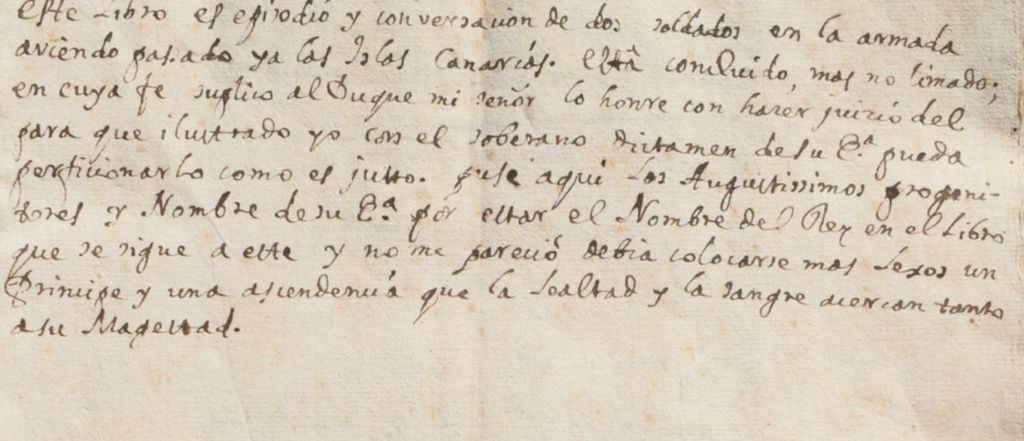 Este Libro es episodio y conversacion de dos soldados en la armada
aviendo passado ya las Islas Canarias. Está concluido, mas no limado;
en cuya fe suplico al Duque mi señor lo honre con hazer juizio del
para que ilustrado yo con el soberano dictamen de su E.ª pueda
perficionarlo como es justo. puse aqui los Augustissimos progeni-
tores y Nombre de su E.ª por estar el Nombre del Rey en el Libro
que se sigue a este y no me pareció debia colocarse mas lexos un
Principe y una ascendencia que la lealtad y la sangre acercan tanto
a su Magestad.